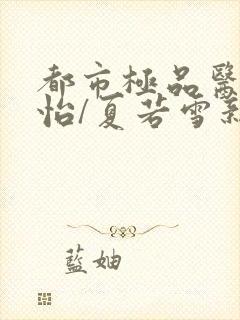 都市極品醫
怡/夏若雪
藍妯